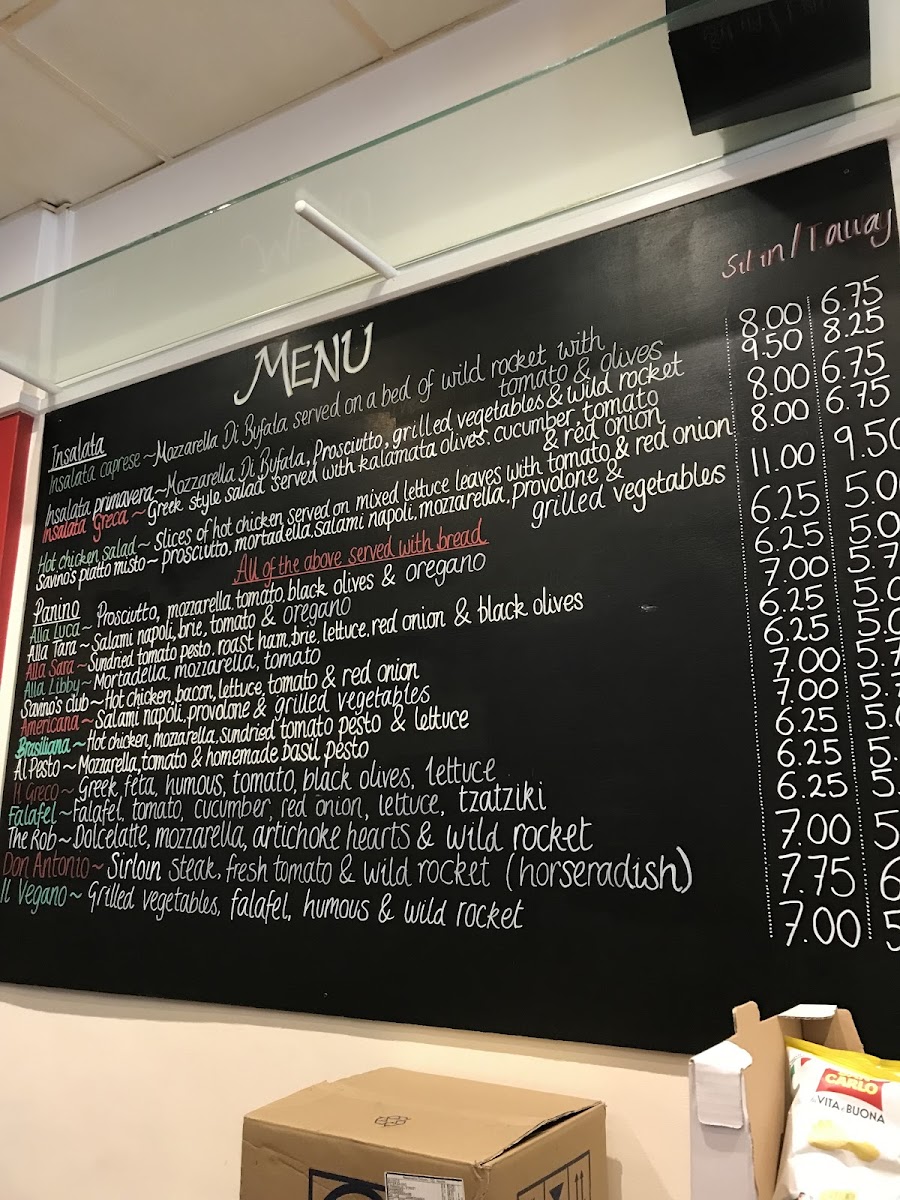 MENU
Sit in / T.away
Insalata
Insalata caprese ~ Mozzarella Di Bufala served on a bed of wild rocket with
tomato & olives
8.00 6.75
Insalata primavera ~ Mozzarella Di Bufala, Prosciutto, grilled vegetables & wild rocket
9.50 8.25
Insalata Greca ~ Greek style salad served with kalamata olives. cucumber, tomato
& red onion
8.00 6.75
Hot chicken salad ~ Slices of hot chicken served on mixed lettuce leaves with tomato & red onion
8.00 6.75
Savino's piatto misto ~ prosciutto, mortadella, salami napoli, mozzarella, provolone, &
grilled vegetables
11.00 9.50
All of the above served with bread
Panino
Alla Luca ~ Prosciutto, mozzarella, tomato, black olives & oregano
6.25 5.0
Alla Tara ~ Salami napoli, brie, tomato & oregano
6.25 5.0
Alla Sara ~ Sundried tomato pesto, roast ham, brie, lettuce, red onion & black olives
7.00 5.7
Alla Libby ~ Mortadella, mozzarella, tomato
6.25 5.0
Savino's club ~ Hot chicken, bacon, lettuce, tomato & red onion
6.25 5.0
Americana ~ Salami napoli, provolone & grilled vegetables
7.00 5.7
Brasiliana ~ Hot chicken, mozzarella, sundried tomato pesto & lettuce
7.00 5.7
Al Pesto ~ Mozzarella, tomato & homemade basil pesto
6.25 5.0
Il Greco ~ Greek feta, humous, tomato, black olives, lettuce
6.25 5.
Falafel ~ Falafel, tomato, cucumber, red onion, lettuce, tzatziki
6.25 5.
The Rob ~ Dolcelatte, mozzarella, artichoke hearts & wild rocket
7.00 5
Don Antonio ~ Sirloin steak, fresh tomato & wild rocket (horseradish)
7.75 6
Il Vegano ~ Grilled vegetables, falafel, humous & wild rocket
7.00 5
CARLO
VITA è BUONA